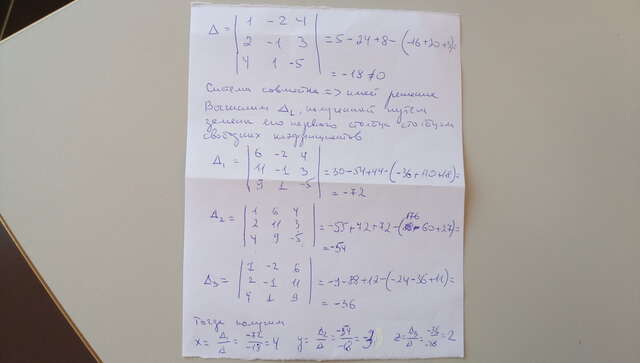 Δ = | 1 -2 4 |
| 2 -1 3 | = 5 - 24 + 8 - (-16 + 20 + 3) =
| 4 1 -5 | = -18 ≠ 0
Система совместна => имеет решение
Вычислим Δ₁, полученный путем
замены его первого столбца столбцом
свободных коэффициентов
Δ₁ = | 6 -2 4 |
| 11 -1 3 | = 30 - 54 + 44 - (-36 + 110 + 18) =
| 9 1 -5 | = -72
Δ₂ = | 1 6 4 |
| 2 11 3 | = -55 + 72 + 72 - (176 - 60 + 27) =
| 4 9 -5 | = -54
Δ₃ = | 1 -2 6 |
| 2 -1 11 | = -9 - 88 + 12 - (-24 - 36 + 11) =
| 4 1 9 | = -36
Тогда получим
x = Δ₁/Δ = -72/-18 = 4 y = Δ₂/Δ = -54/-18 = 3 z = Δ₃/Δ = -36/-18 = 2